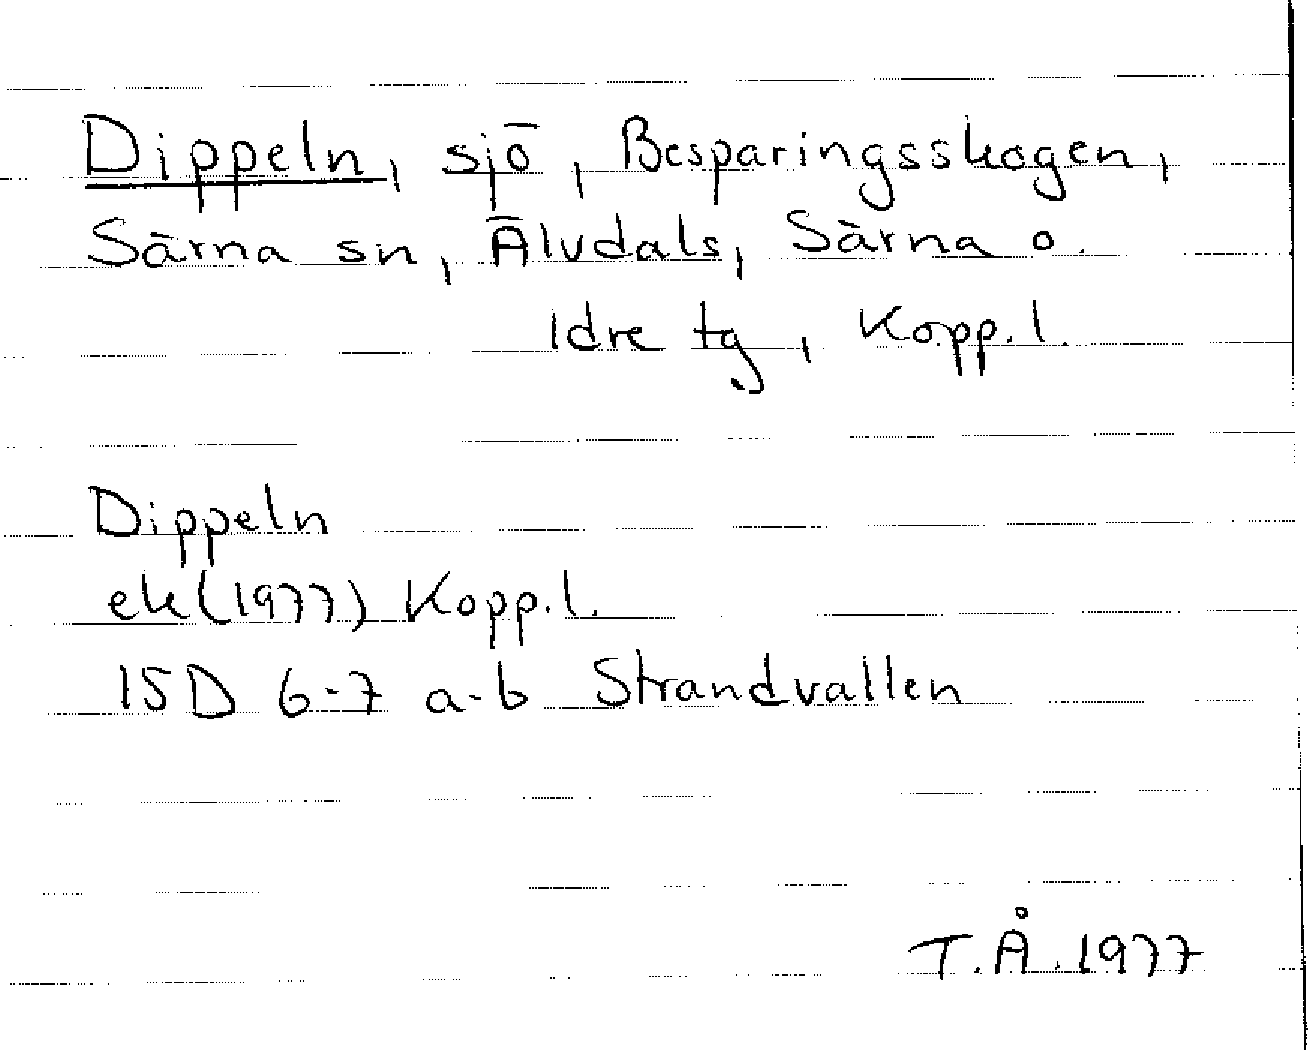 Dippeln, sjö, Besparingsskogen,
Särna sn, Älvdals, Särna o.
Idre tg, Kopp.l.
Dippeln
ek(1977) Kopp.l.
15D 6-7 a-b Strandvallen
T.Å.1977